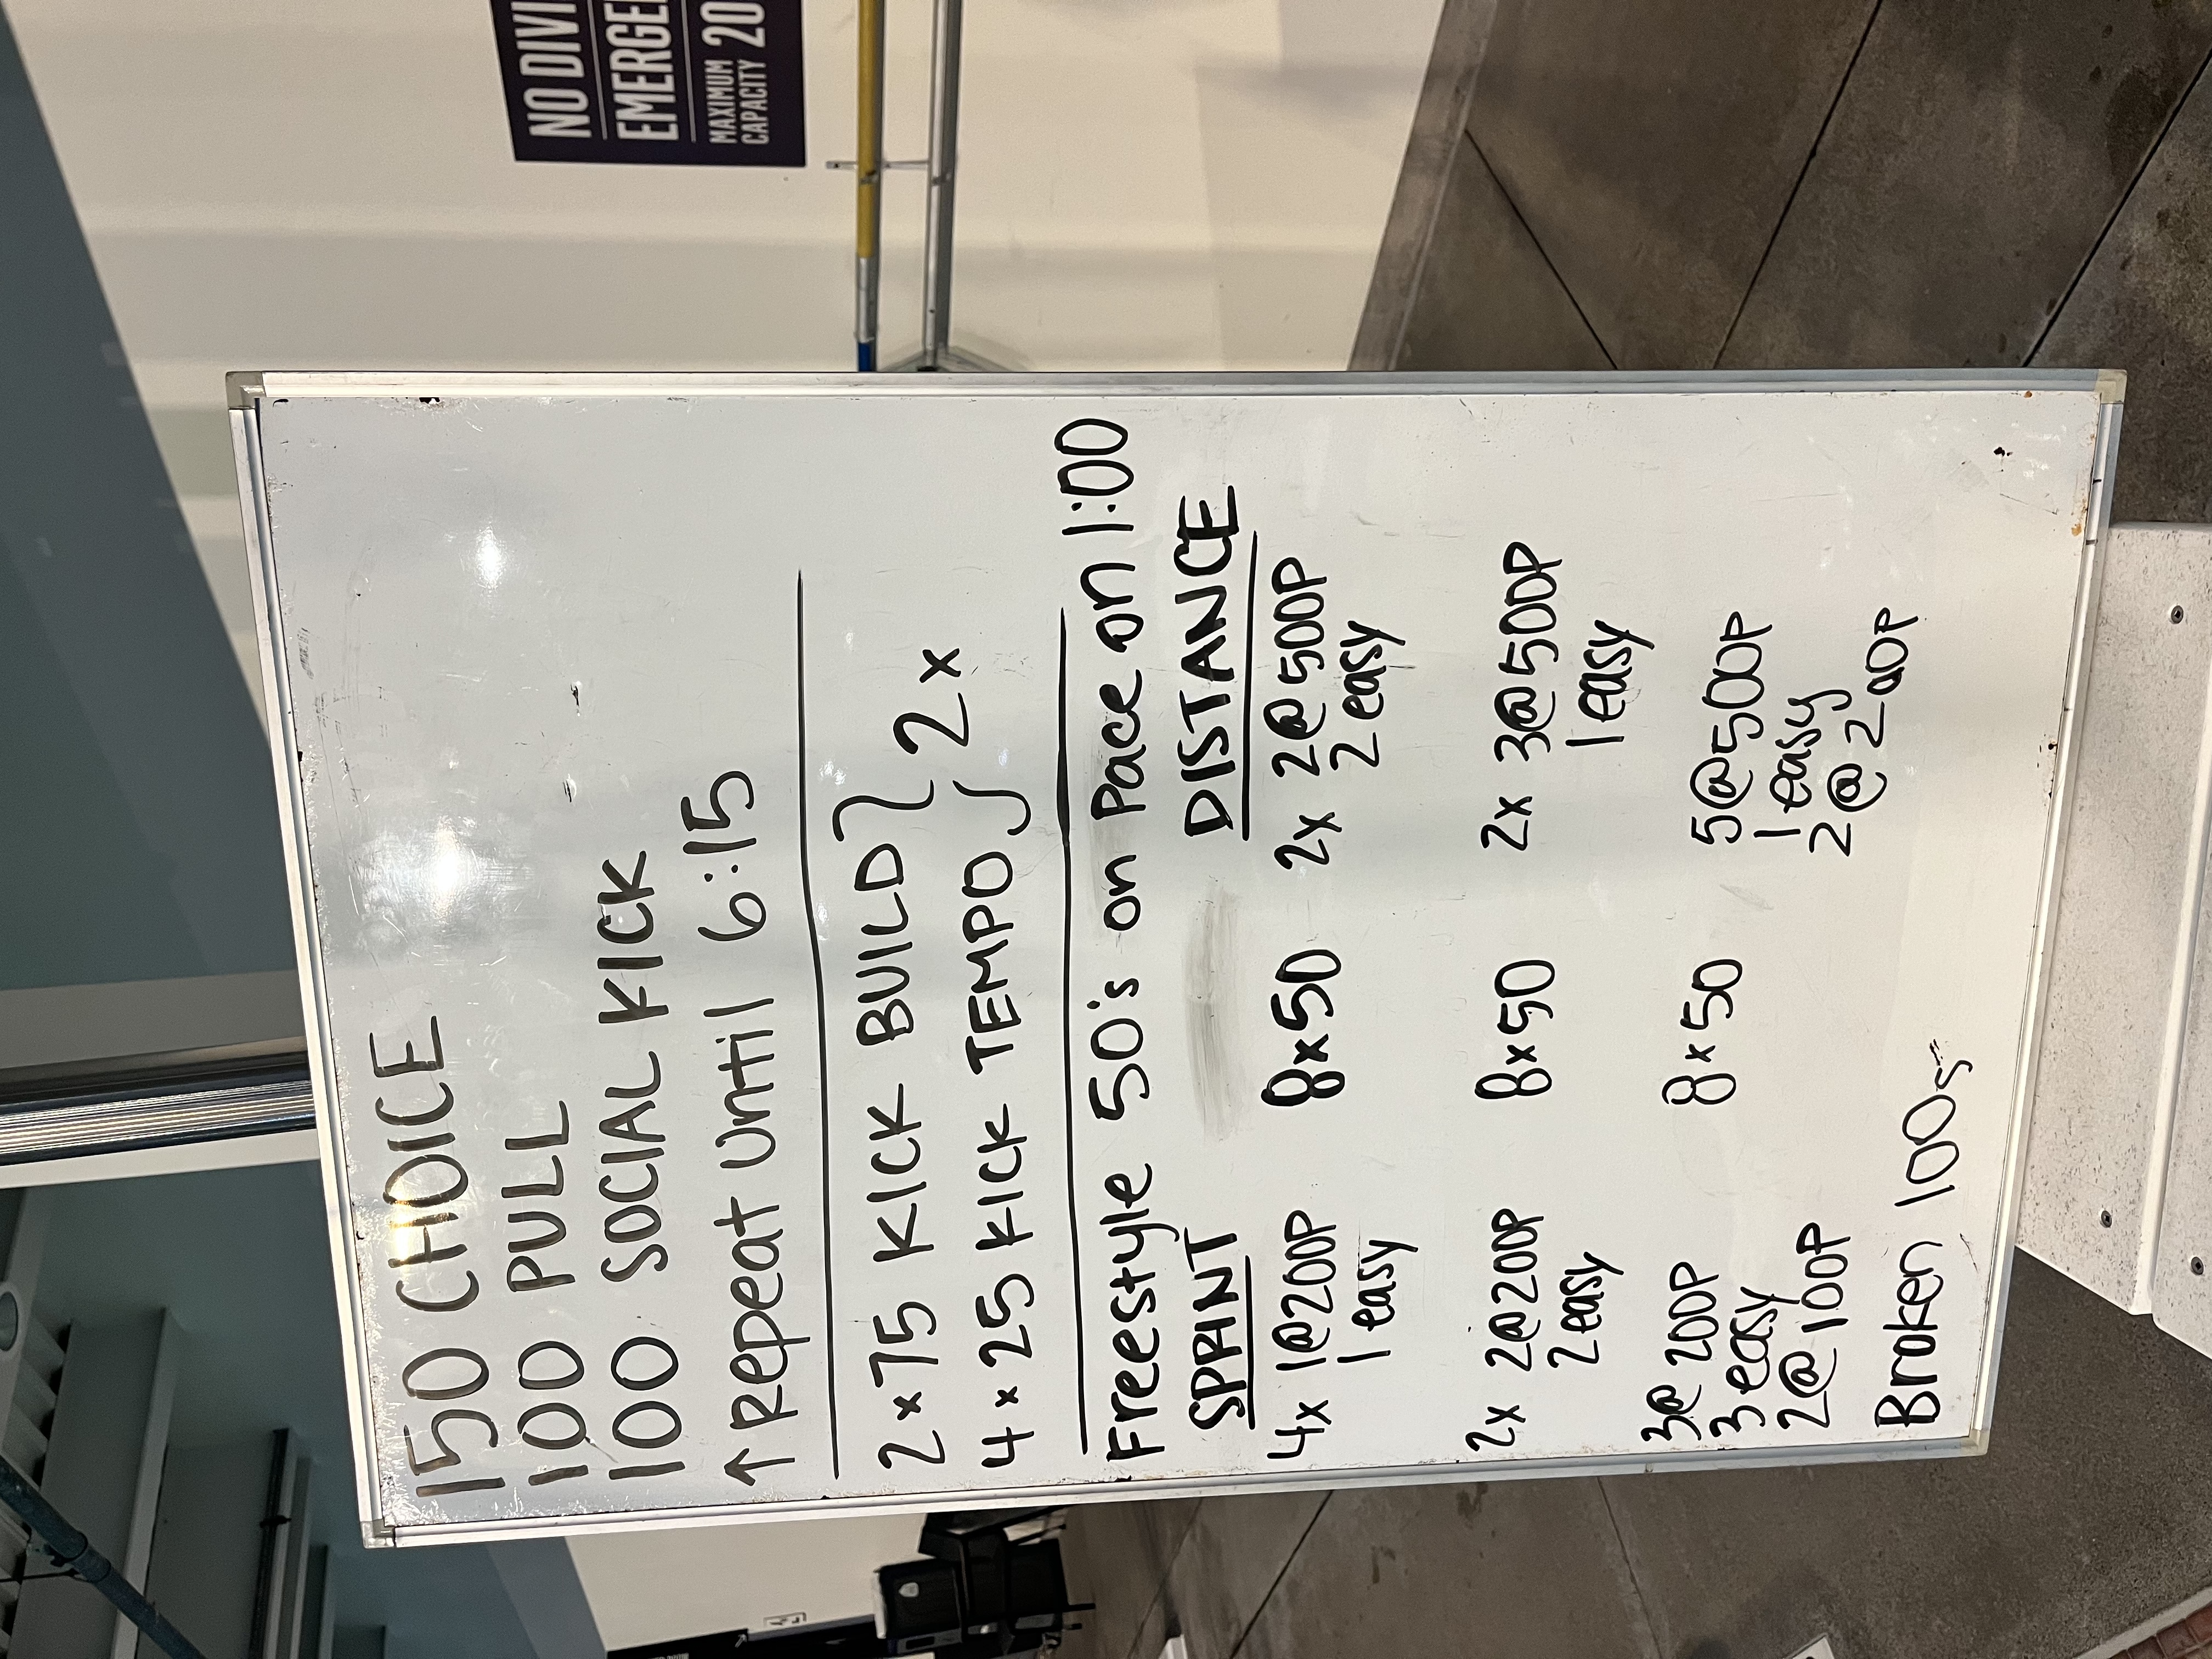 NO DIVI
EMERGE
MAXIMUM
CAPACITY 20
150 CHOICE
100 PULL
100 SOCIAL KICK
↑ Repeat until 6:15
2 x 75 KICK BUILD } 2x
4 x 25 KICK TEMPO
Freestyle 50's on Pace on 1:00
SPRINT DISTANCE
4x 1@200P 8x50 2x 2@500P
1 easy 2 easy
2x 2@200P 8x50 2x 3@500P
2 easy 1 easy
3@200P 8x50 5@500P
3 easy 1 easy
2@100P 2@200P
Broken 100s